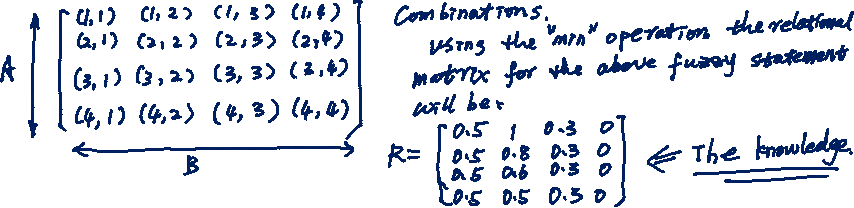 (1,1) (1,2) (1,3) (1,4)
(2,1) (2,2) (2,3) (2,4)
(3,1) (3,2) (3,3) (3,4)
(4,1) (4,2) (4,3) (4,4)
A
B
Combinations.
Using the "min" operation the relational
matrix for the above fuzzy statement
will be:
R= 0.5 1 0.3 0
0.5 0.8 0.3 0
0.5 0.6 0.3 0
0.5 0.5 0.3 0
The knowledge.